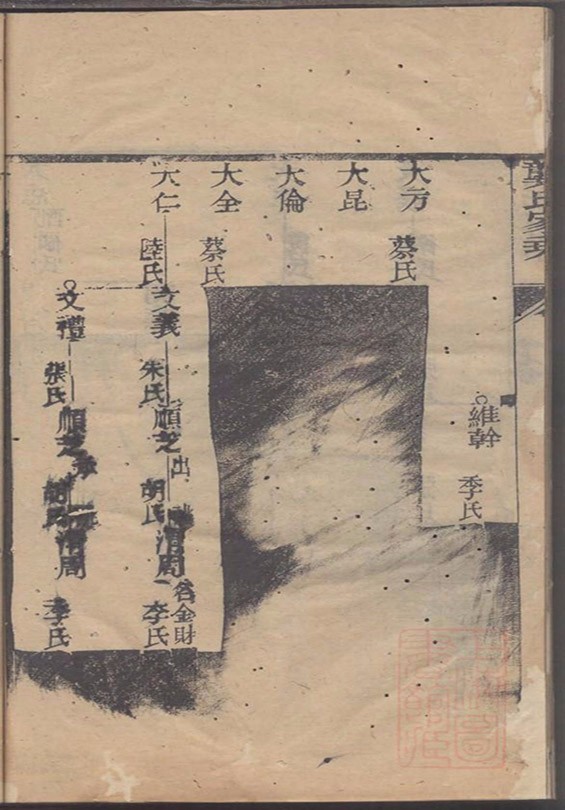 氏家乘
維幹
李氏
大方
蔡氏
大昆
大倫
大全
蔡氏
大仁
陸氏
文義
朱氏
順芝
出
胡氏
周
名金財
李氏
文禮
張氏
順芝
胡氏
周
李氏